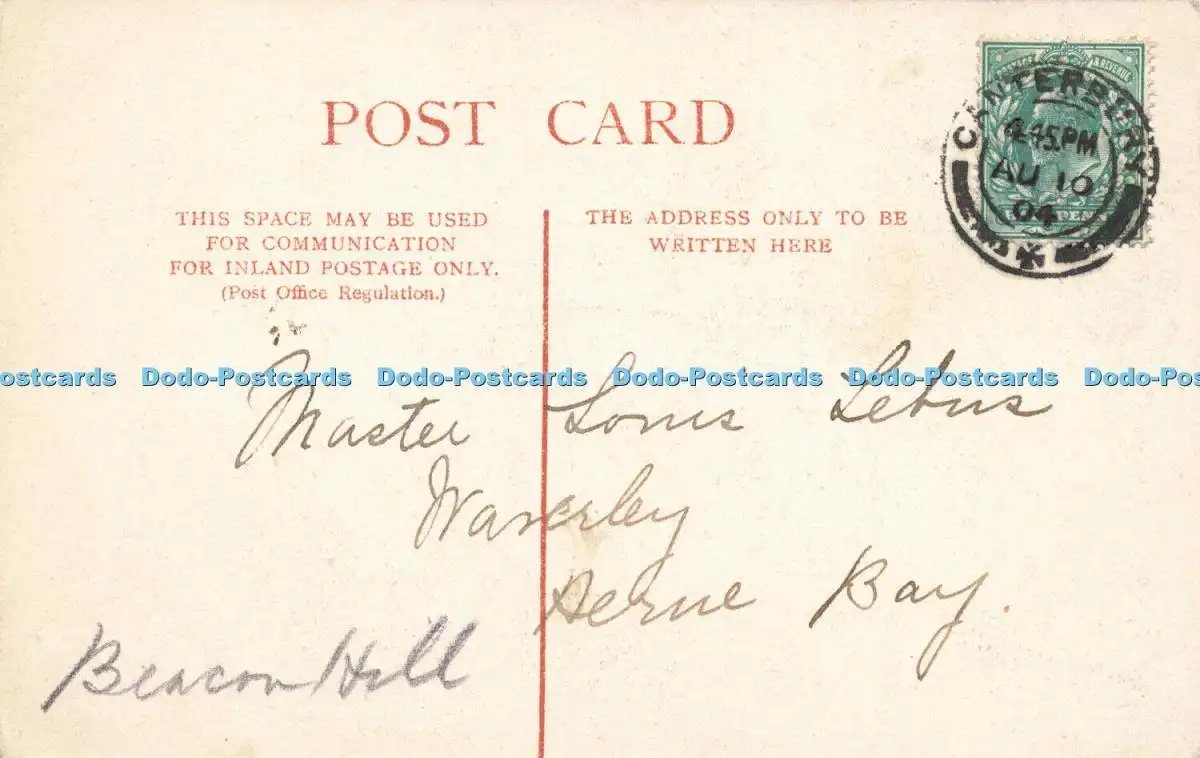 POST CARD
THIS SPACE MAY BE USED
FOR COMMUNICATION
FOR INLAND POSTAGE ONLY.
(Post Office Regulation.)
THE ADDRESS ONLY TO BE
WRITTEN HERE
& REVENUE
CANTERBURY
4.45PM
AU 10
04
Master Louis Lebus
Waverley
Herne Bay.
Beacon Hill
ostcards Dodo-Postcards Dodo-Postcards Dodo-Postcards Dodo-Postcards Dodo-Pos